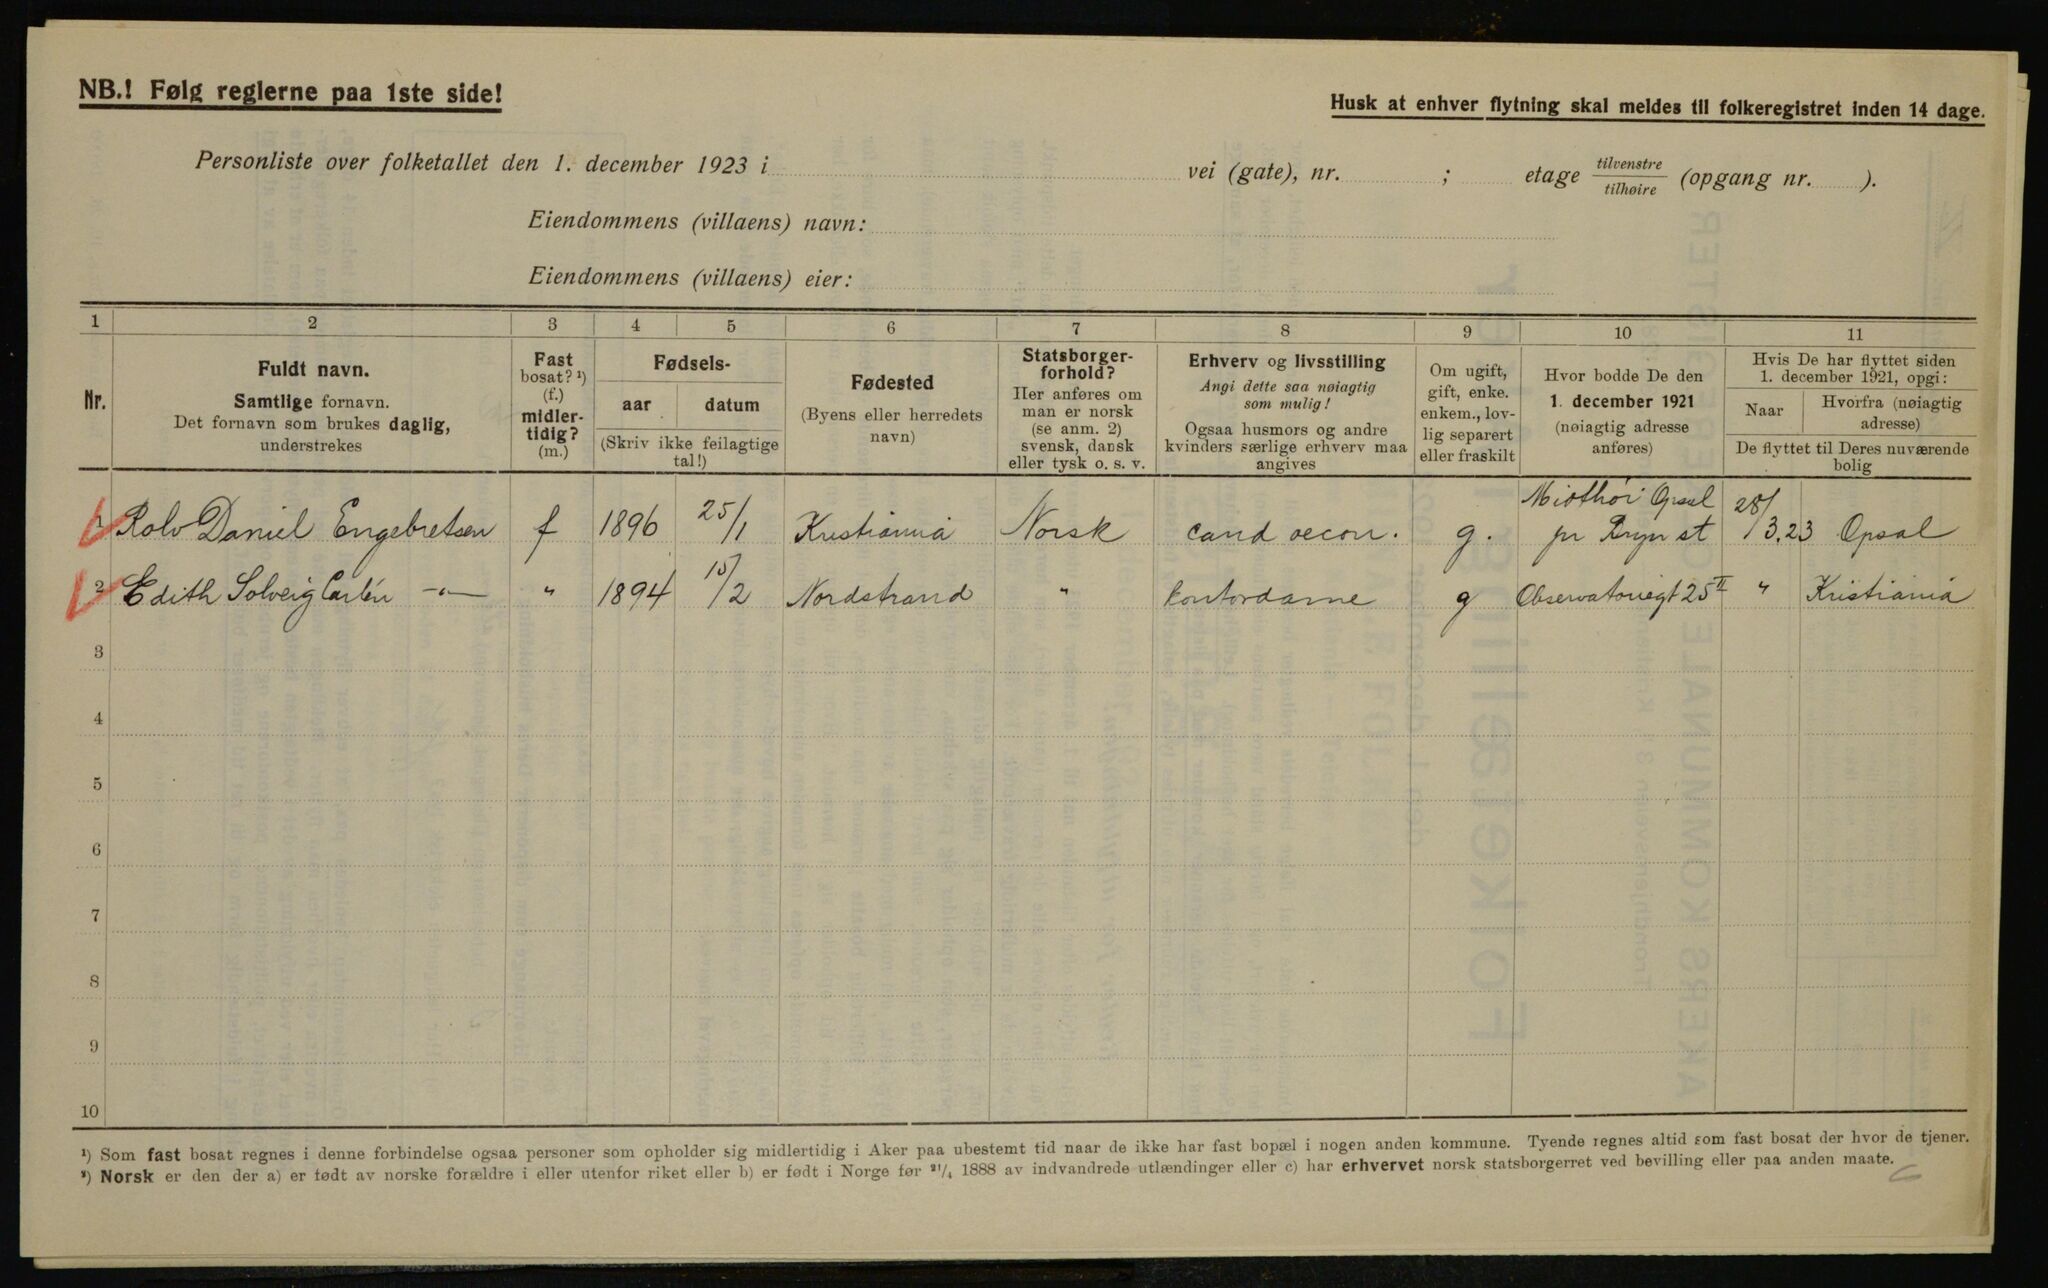 NB.! Følg reglerne paa 1ste side!
Husk at enhver flytning skal meldes til folkeregistret inden 14 dage.
Personliste over folketallet den 1. december 1923 i vei (gate), nr. ; etage tilvenstre/tilhøire (opgang nr. ).
Eiendommens (villaens) navn:
Eiendommens (villaens) eier:
1 2 3 4 5 6 7 8 9 10 11
Nr.
Fuldt navn.
Samtlige fornavn.
Det fornavn som brukes daglig,
understrekes
Fast
bosat? ¹)
(f.)
midler-
tidig?
(m.)
Fødsels-
aar datum
(Skriv ikke feilagtige
tal!)
Fødested
(Byens eller herredets
navn)
Statsborger-
forhold?
Her anføres om
man er norsk
(se anm. 2)
svensk, dansk
eller tysk o. s. v.
Erhverv og livsstilling
Angi dette saa nøiagtig
som mulig!
Ogsaa husmors og andre
kvinders særlige erhverv maa
angives
Om ugift,
gift, enke.
enkem., lov-
lig separert
eller fraskilt
Hvor bodde De den
1. december 1921
(nøiagtig adresse
anføres)
Hvis De har flyttet siden
1. december 1921, opgi:
Naar
Hvorfra (nøiagtig
adresse)
De flyttet til Deres nuværende
bolig
1 Rolv Daniel Engebretsen f 1896 25/1 Kristiania Norsk cand oecon. g. Opsal pr Bryn st 28/3.23 Opsal
2 Edith Solveig Carlén —"— " 1894 15/2 Nordstrand " kontordame g Observatoriegt 25 II " Kristiania
3
4
5
6
7
8
9
10
¹) Som fast bosat regnes i denne forbindelse ogsaa personer som opholder sig midlertidig i Aker paa ubestemt tid naar de ikke har fast bopæl i nogen anden kommune. Tyende regnes altid som fast bosat der hvor de tjener.
²) Norsk er den der a) er født av norske forældre i eller utenfor riket eller b) er født i Norge før ²¹/₄ 1888 av indvandrede utlændinger eller c) har erhvervet norsk statsborgerret ved bevilling eller paa anden maate.